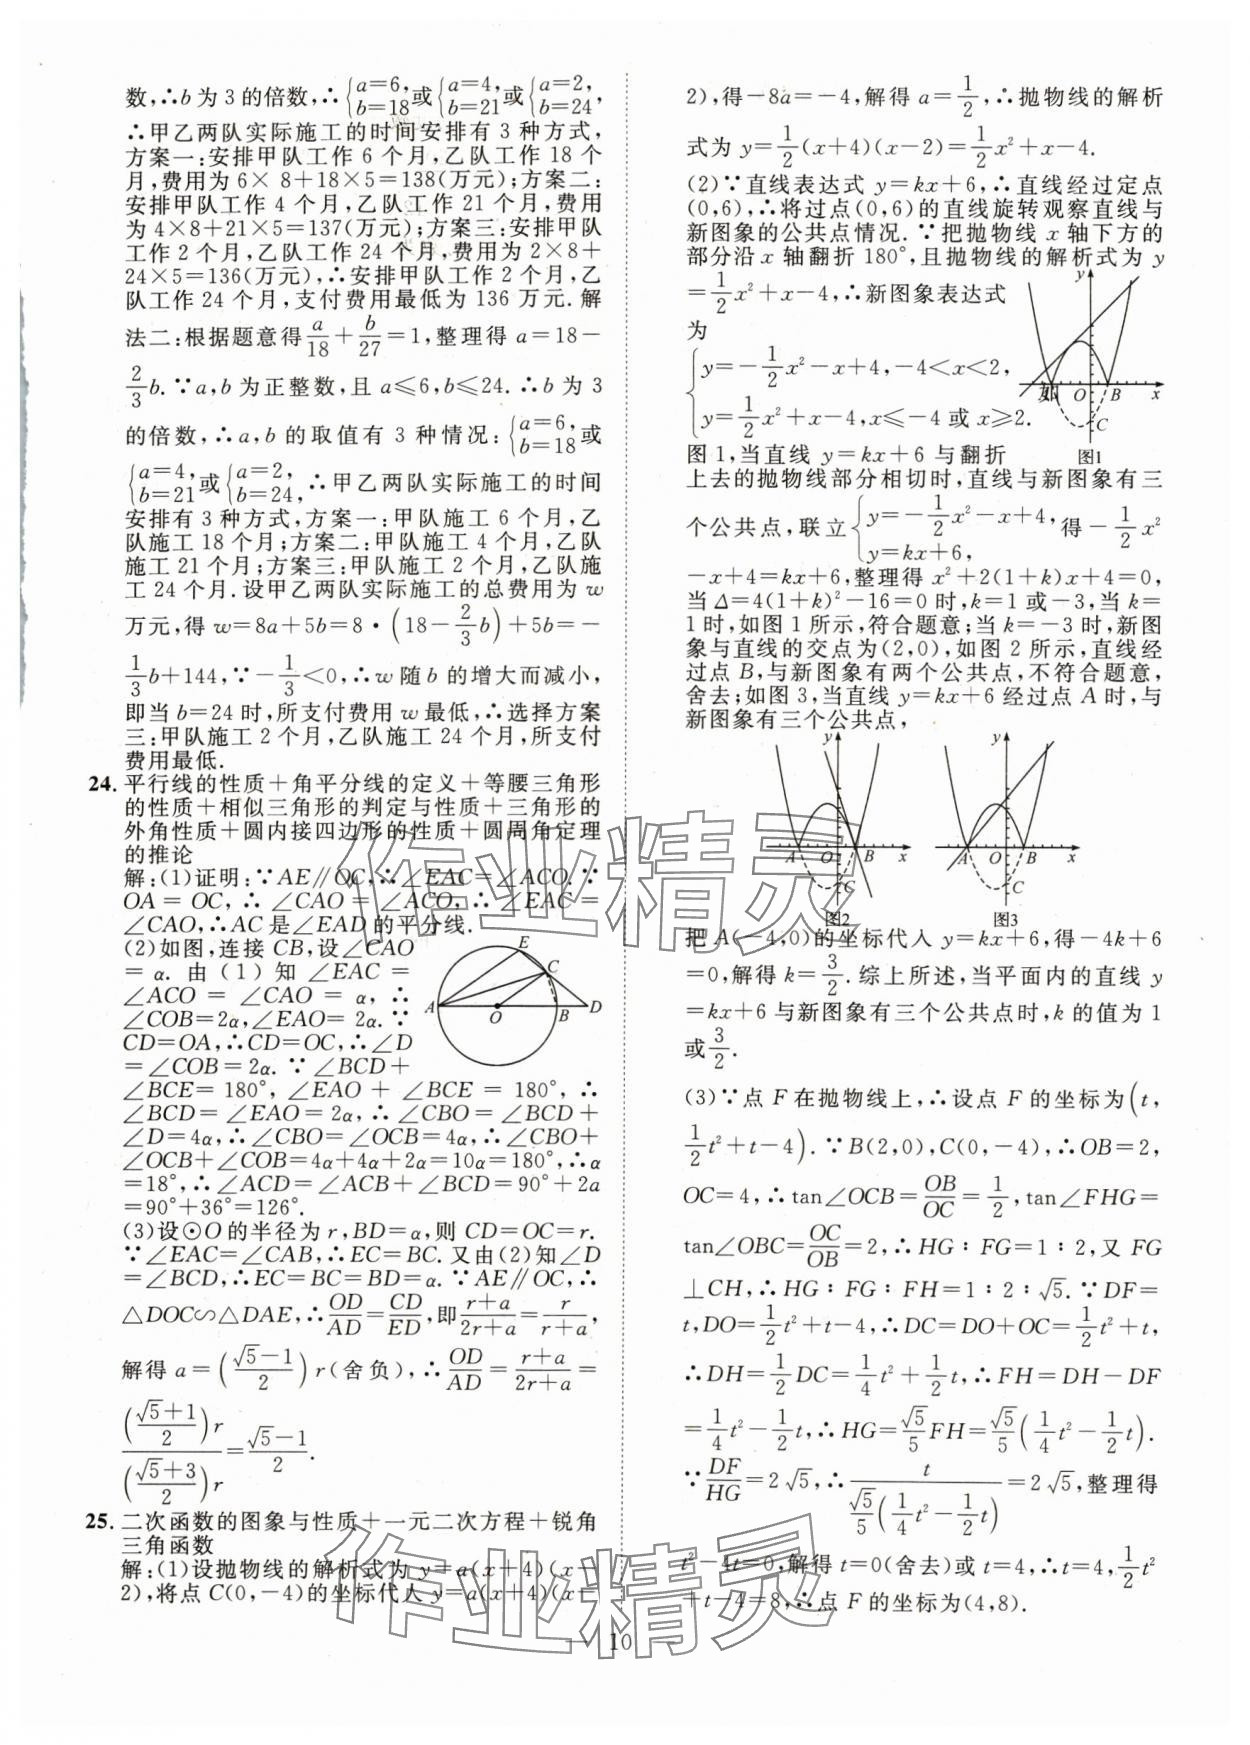 数,∴b 为 3 的倍数,∴{a=6, b=18 或{a=4, b=21 或{a=2, b=24,
∴甲乙两队实际施工的时间安排有 3 种方式,
方案一:安排甲队工作 6 个月,乙队工作 18 个
月,费用为 6×8+18×5=138(万元);方案二:
安排甲队工作 4 个月,乙队工作 21 个月,费用
为 4×8+21×5=137(万元);方案三:安排甲队
工作 2 个月,乙队工作 24 个月,费用为 2×8+
24×5=136(万元),∴安排甲队工作 2 个月,乙
队工作 24 个月,支付费用最低为 136 万元.解
法二:根据题意得 a/18+b/27=1,整理得 a=18-
2/3b.∵a,b 为正整数,且 a≤6,b≤24.∴b 为 3
的倍数,∴a,b 的取值有 3 种情况:{a=6, b=18 或
{a=4, b=21 或{a=2, b=24, ∴甲乙两队实际施工的时间
安排有 3 种方式,方案一:甲队施工 6 个月,乙
队施工 18 个月;方案二:甲队施工 4 个月,乙队
施工 21 个月;方案三:甲队施工 2 个月,乙队施
工 24 个月.设甲乙两队实际施工的总费用为 w
万元,得 w=8a+5b=8·(18-2/3b)+5b=-
1/3b+144,∵-1/3<0,∴w 随 b 的增大而减小,
即当 b=24 时,所支付费用 w 最低,∴选择方案
三:甲队施工 2 个月,乙队施工 24 个月,所支付
费用最低.
24. 平行线的性质+角平分线的定义+等腰三角形
的性质+相似三角形的判定与性质+三角形的
外角性质+圆内接四边形的性质+圆周角定理
的推论
解:(1)证明:∵AE∥OC,∴∠EAC=∠ACO.∵
OA=OC,∴∠CAO=∠ACO,∴∠EAC=
∠CAO,∴AC 是∠EAD 的平分线.
(2)如图,连接 CB,设∠CAO
=α.由(1)知∠EAC=
∠ACO=∠CAO=α,∴
∠COB=2α,∠EAO=2α.∵
CD=OA,∴CD=OC,∴∠D
=∠COB=2α.∵∠BCD+
∠BCE=180°,∠EAO+∠BCE=180°,∴
∠BCD=∠EAO=2α,∴∠CBO=∠BCD+
∠D=4α,∴∠CBO=∠OCB=4α,∴∠CBO+
∠OCB+∠COB=4α+4α+2α=10α=180°,∴α
=18°,∴∠ACD=∠ACB+∠BCD=90°+2α
=90°+36°=126°.
E
C
A
O
B
D
(3)设⊙O 的半径为 r,BD=α,则 CD=OC=r.
∵∠EAC=∠CAB,∴EC=BC.又由(2)知∠D
=∠BCD,∴EC=BC=BD=α.∵AE∥OC,∴
△DOC∽△DAE,∴OD/AD=CD/ED,即(r+a)/(2r+a)=r/(r+a),
解得 a=((√5-1)/2)r(舍负),∴OD/AD=(r+a)/(2r+a)=
((√5+1)/2)r/((√5+3)/2)r=(√5-1)/2.
25. 二次函数的图象与性质+一元二次方程+锐角
三角函数
解:(1)设抛物线的解析式为 y=a(x+4)(x-
2),将点 C(0,-4)的坐标代入 y=a(x+4)(x-
2),得-8a=-4,解得 a=1/2,∴抛物线的解析
式为 y=1/2(x+4)(x-2)=1/2x²+x-4.
(2)∵直线表达式 y=kx+6,∴直线经过定点
(0,6),∴将过点(0,6)的直线旋转观察直线与
新图象的公共点情况.∵把抛物线 x 轴下方的
部分沿 x 轴翻折 180°,且抛物线的解析式为 y
=1/2x²+x-4,∴新图象表达式
为
{y=-1/2x²-x+4,-4<x<2,
y=1/2x²+x-4,x≤-4 或 x≥2. 如
y
O
B
x
C
图1
图 1,当直线 y=kx+6 与翻折
上去的抛物线部分相切时,直线与新图象有三
个公共点,联立{y=-1/2x²-x+4, y=kx+6, 得-1/2x²
-x+4=kx+6,整理得 x²+2(1+k)x+4=0,
当 Δ=4(1+k)²-16=0 时,k=1 或-3,当 k=
1时,如图 1 所示,符合题意;当 k=-3 时,新图
象与直线的交点为(2,0),如图 2 所示,直线经
过点 B,与新图象有两个公共点,不符合题意,
舍去;如图 3,当直线 y=kx+6 经过点 A 时,与
新图象有三个公共点,
y
A
O
B
x
C
图2
y
A
O
B
x
C
图3
把 A(-4,0)的坐标代入 y=kx+6,得-4k+6
=0,解得 k=3/2.综上所述,当平面内的直线 y
=kx+6 与新图象有三个公共点时,k 的值为 1
或3/2.
(3)∵点 F 在抛物线上,∴设点 F 的坐标为(t,
1/2t²+t-4).∵B(2,0),C(0,-4),∴OB=2,
OC=4,∴tan∠OCB=OB/OC=1/2,tan∠FHG=
tan∠OBC=OC/OB=2,∴HG∶FG=1∶2,又 FG
⊥CH,∴HG∶FG∶FH=1∶2∶√5.∵DF=
t,DO=1/2t²+t-4,∴DC=DO+OC=1/2t²+t,
∴DH=1/2DC=1/4t²+1/2t,∴FH=DH-DF
=1/4t²-1/2t,∴HG=√5/5FH=√5/5(1/4t²-1/2t).
∵DF/HG=2√5,∴t/(√5/5(1/4t²-1/2t))=2√5,整理得
t²-4t=0,解得 t=0(舍去)或 t=4,∴t=4,1/2t²
+t-4=8,∴点 F 的坐标为(4,8).
— 10 —
作业精灵
作业精灵